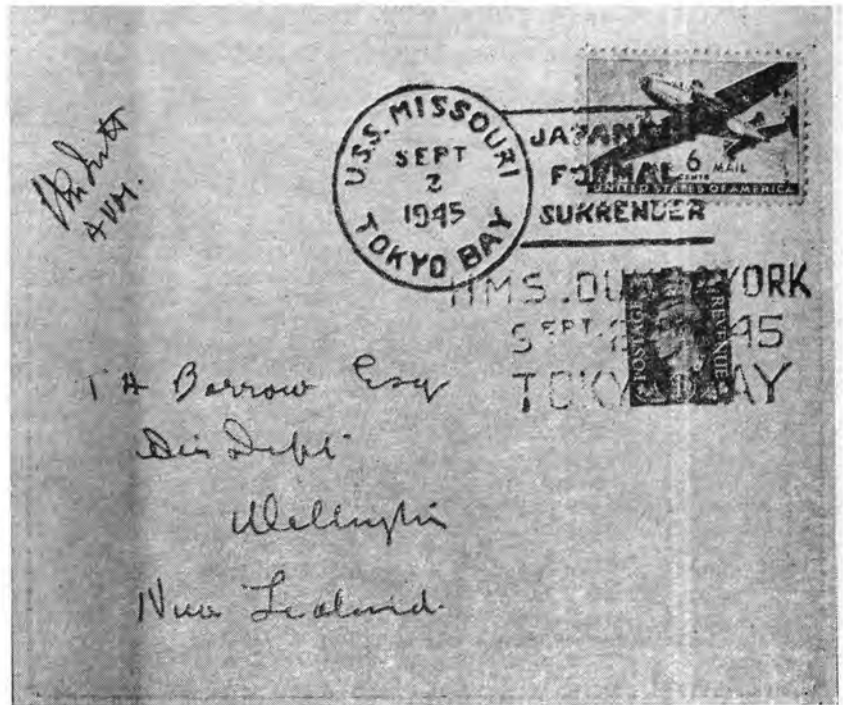 U.S.S. MISSOURI
SEPT
2
1945
TOKYO BAY
JAPANESE
FORMAL
SURRENDER
6 CENTS MAIL
UNITED STATES OF AMERICA
H.M.S. DUKE YORK
SEPT 2 1945
TOKYO BAY
POSTAGE
REVENUE
A.V.M.
T H Barrow Esq
Air Dept
Wellington
New Zealand.